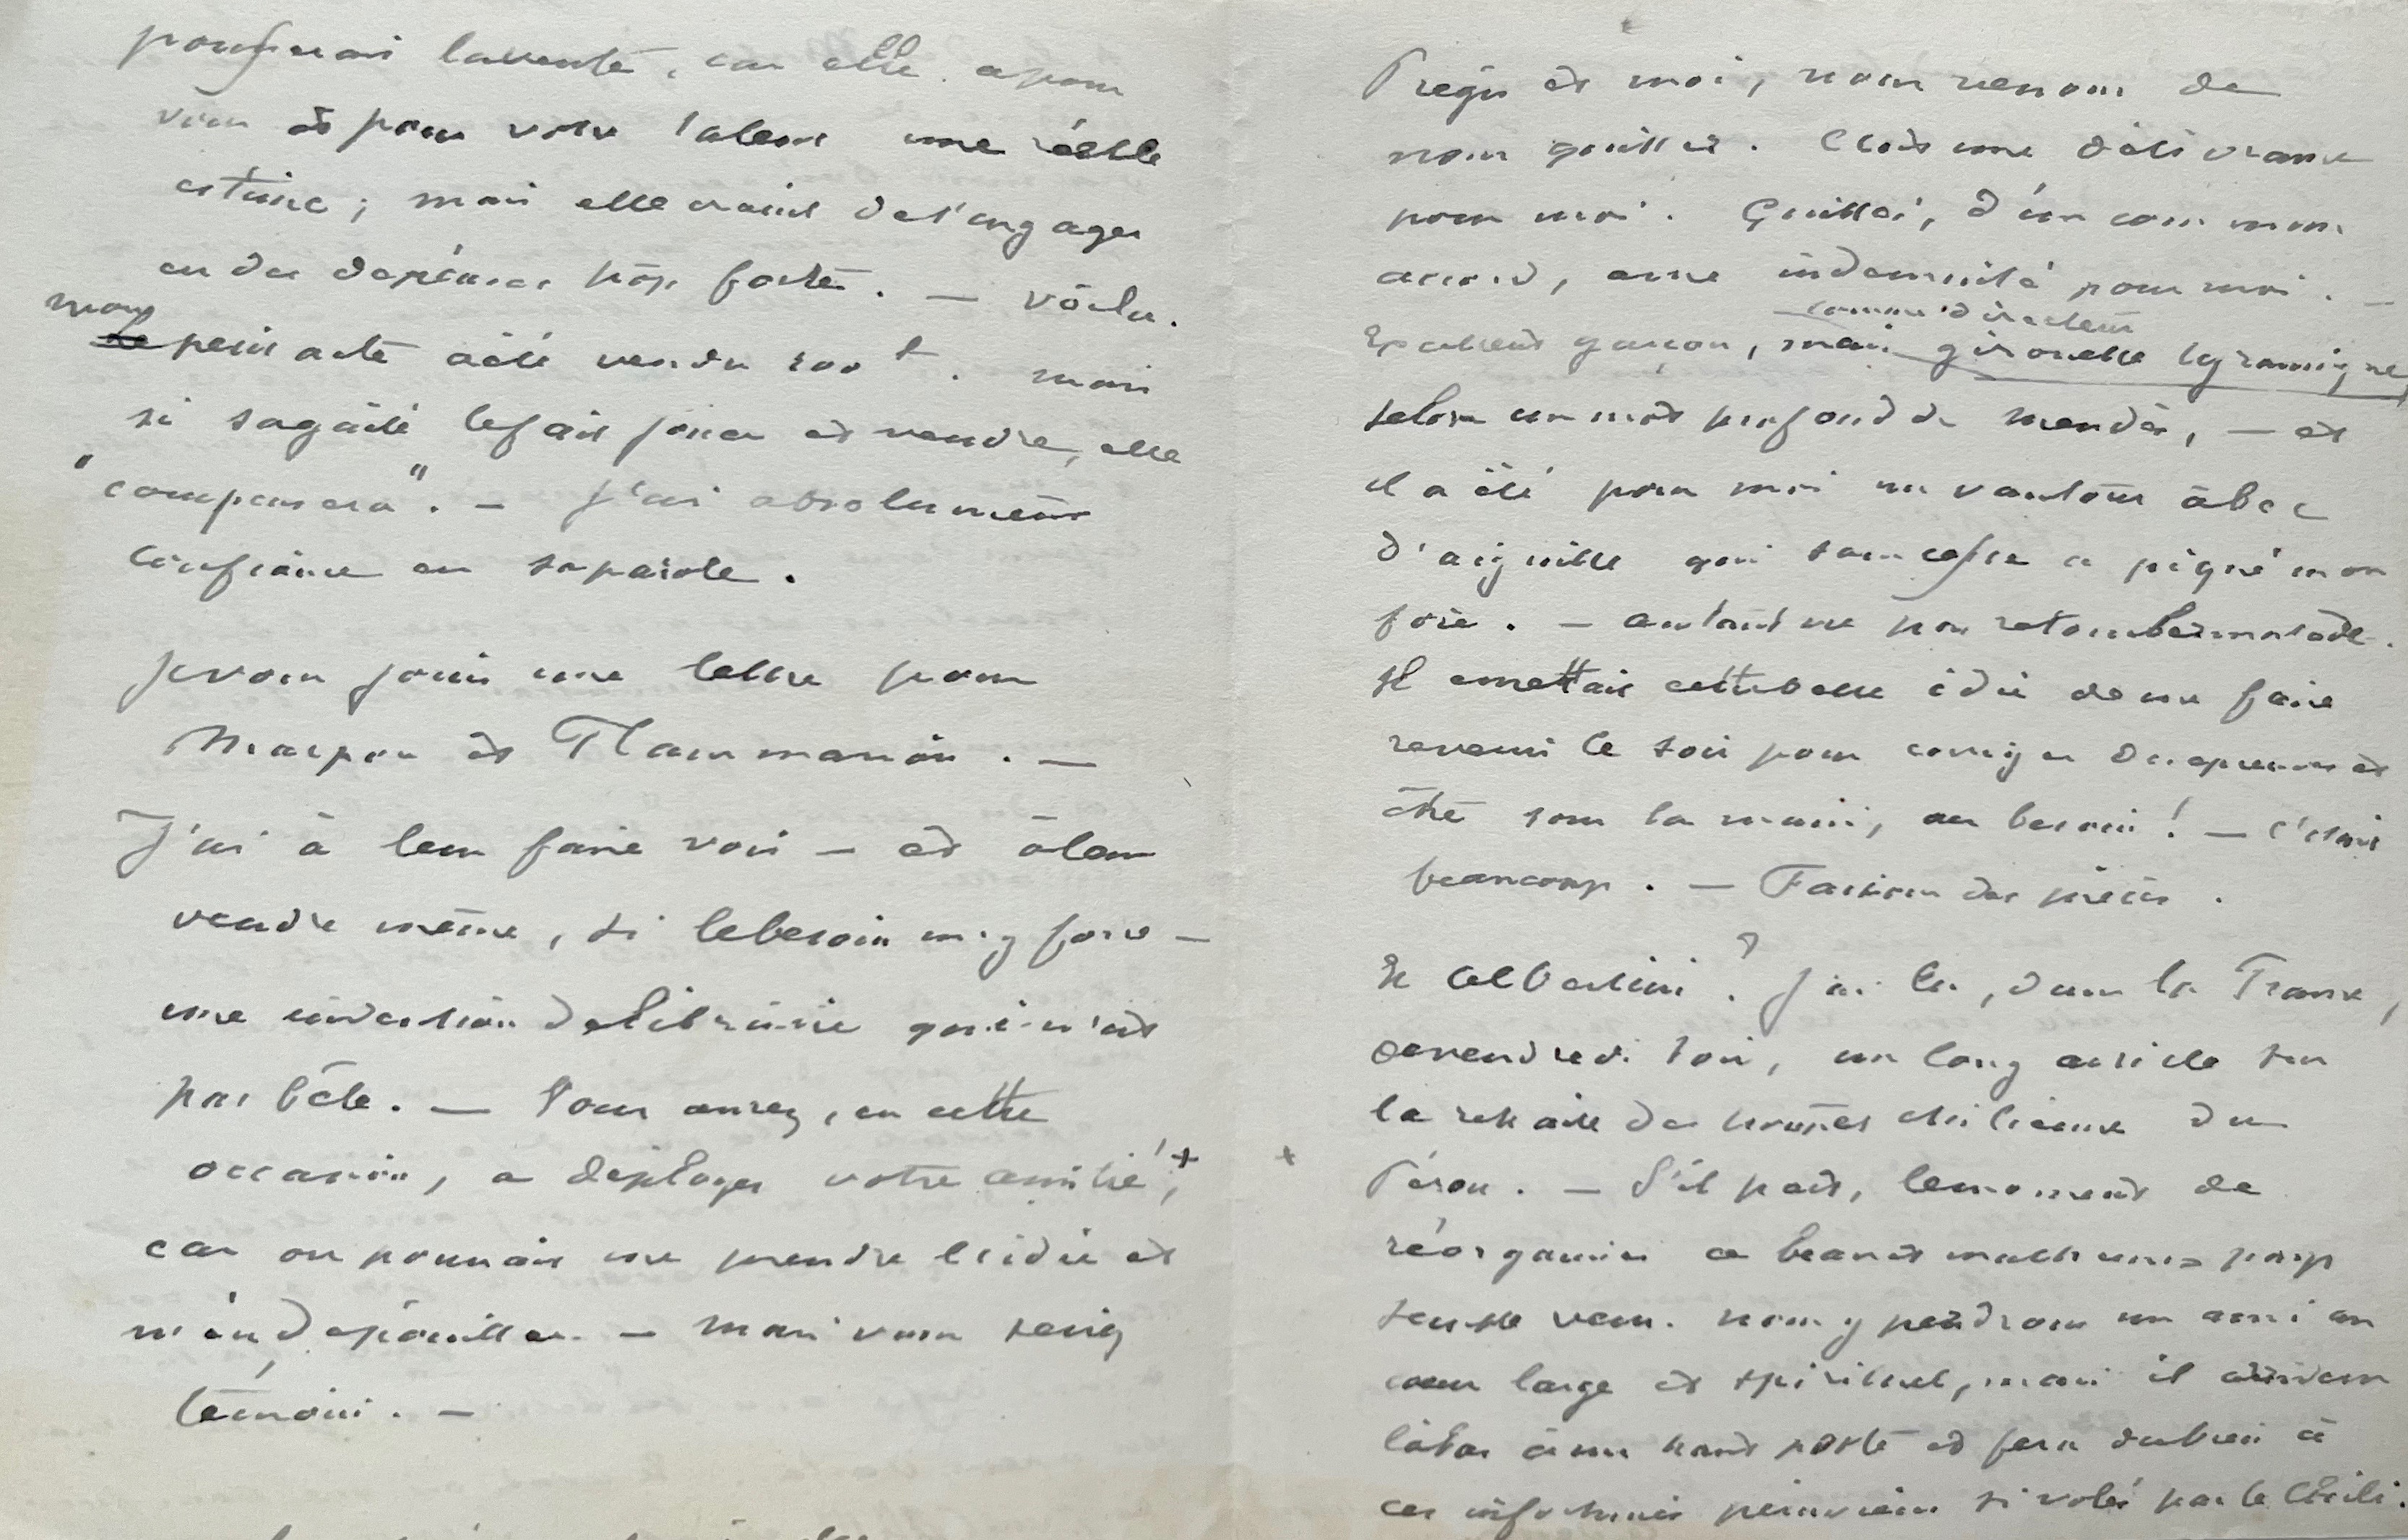 pousserai la vente, car elle a pour
vous et pour votre talent une réelle
estime ; mais elle craint de s'engager
en des dépenses trop fortes. — Voilà.
mon
petit acte a été vendu 200 f. mais
si sa gaîté le fait jouer et vendre, elle
"compensera". — J'ai absolument
confiance en sa parole.
Je vous joins une lettre pour
Marpon et Flammarion. —
J'ai à leur faire voir — et à leur
vendre même, si le besoin m'y force —
une invention de librairie qui n'est
pas bête. — Vous aurez, en cette
occasion, à déployer votre amitié, +
car on pourrait me prendre l'idée et
m'en dépouiller. — mais vous serez
témoin. —
+
et moi, nous venons de
nous quitter. C'est une délivrance
pour moi. Quittés, d'un commun
accord, avec indemnité pour moi. —
comme directeur
Excellent garçon, mais girouette
selon un mot profond de Mendès, — et
il a été pour moi un vautour à bec
d'aiguille qui sans cesse a piqué mon
foie. — autant ne pas retomber malade.
Il émettait cette belle idée de me faire
revenir le soir pour corriger des épreuves et
être sous la main, au besoin ! — C'était
beaucoup. — Faisons des pièces.
Et Albertini ? J'ai lu, dans la France,
de vendredi soir, un long article sur
la retraite des troupes chiliennes du
Pérou. — S'il part, le moment de
réorganiser ce beau et malheureux pays
semble venu. nous y perdrons un ami au
cœur large et spirituel, mais il
là-bas à un haut poste et fera du bien à
ces infortunés péruviens si volés par le Chili.